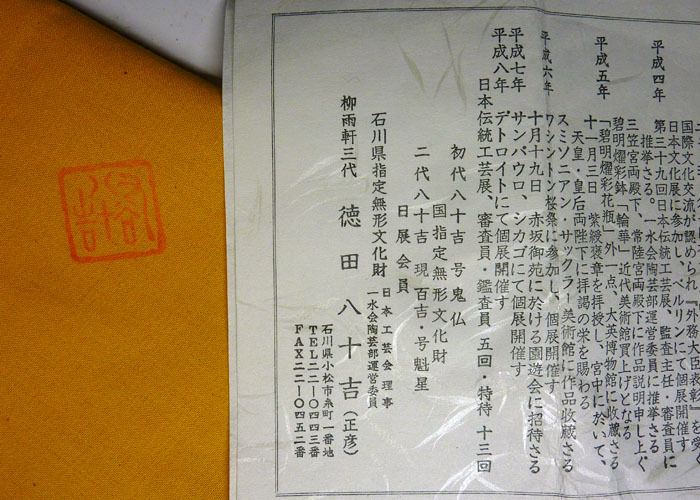 平成四年
国際文化交流が認められ「外務大臣表彰」を受く
日本文化展に参加し、ベルリンにて個展開催す
第三十九回日本伝統工芸展、監査主任・審査員に
推挙さる。一水会陶芸部運営委員に推挙さる
三笠宮両殿下、常陸宮両殿下に作品説明申し上ぐ
碧明燿彩鉢「輪華」近代美術館買上げとなる
平成五年
「碧明燿彩花瓶」外一点、大英博物館に収蔵さる
十一月三日 紫綬褒章を拝授し、宮中に於いて、
天皇・皇后両陛下に拝謁の栄を賜わる
スミソニアン・サックラー美術館に作品収蔵さる
平成六年
ワシントン桜祭に参加し、個展開催す
十月十九日 赤坂御苑に於ける園遊会に招待さる
平成七年 サンパウロ、シカゴにて個展開催す
平成八年 デトロイトにて個展開催す
日本伝統工芸展、審査員・鑑査員 五回・特待 十三回
初代八十吉 号鬼仏
国指定無形文化財
二代八十吉 現百吉・号魁星
日展会員
石川県指定無形文化財
柳雨軒三代 徳田八十吉(正彦)
日本工芸会理事
一水会陶芸部運営委員
石川県小松市糸町一番地
TEL二二-〇四四三番
FAX二二-〇四五二番